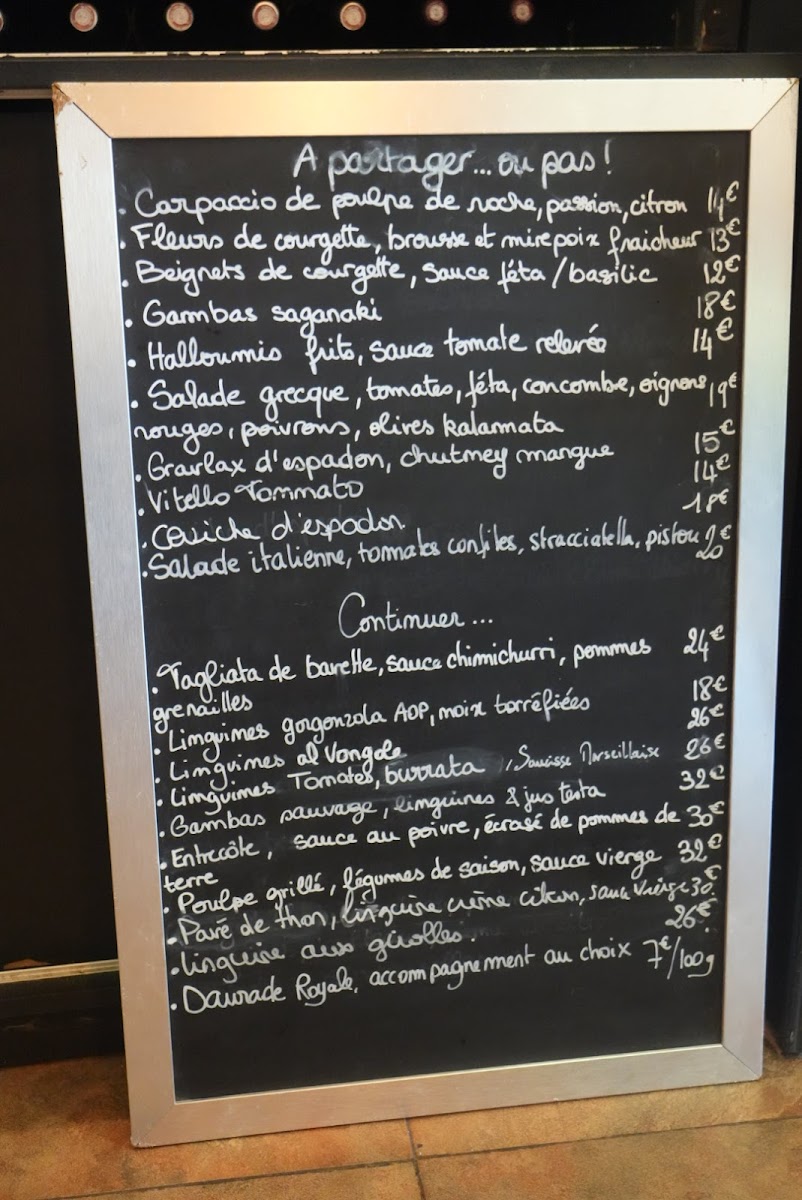 A partager... ou pas!
. Carpaccio de poulpe de roche, passion, citron 14€
. Fleurs de courgette, brousse et mirepoix fraicheur 13€
. Beignets de courgette, sauce féta/basilic 12€
. Gambas saganaki 18€
. Halloumis frits, sauce tomate relevée 14€
. Salade grecque, tomates, féta, concombe, oignons 19€
rouges, poivrons, olives kalamata
. Gravlax d'espadon, chutney mangue 15€
. Vitello Tommato 14€
. Ceviche d'espadon 18€
. Salade italienne, tomates confites, stracciatella, pistou 20€
Continuer...
. Tagliata de bavette, sauce chimichurri, pommes 24€
grenailles
. Linguines gorgonzola AOP, noix torréfiées 18€
. Linguines al Vongole 26€
. Linguines Tomates, burrata, Saucisse Marseillaise 26€
. Gambas sauvage, linguines & jus testa 32€
. Entrecôte, sauce au poivre, écrasé de pommes de 30€
terre
. Poulpe grillé, légumes de saison, sauce vierge 32€
. Pavé de thon, linguine crème citron, sauce vierge 30€
. Linguine aux girolles. 26€
. Daurade Royale, accompagnement au choix 7€/100g